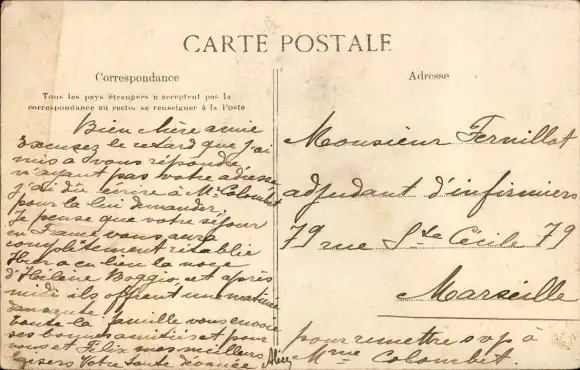 CARTE POSTALE
Correspondance
Tous les pays étrangers n'acceptent pas la
correspondance au recto, se renseigner à la Poste
Bien chère amie
Excusez le retard que j'ai
mis a vous répondre,
n'ayant pas votre adresse
j'ai dû écrire à Mr Colombet
pour la lui demander,
Je pense que votre séjour
en France vous aura
complètement rétablie
Hier a eu lieu la noce
d'Hélène Boggio, et après
midi ils offrent une matinée
dansante
toute la famille vous envoie
ses bonnes amitiés et pour
vous et Félix mes meilleurs
baisers Votre toute dévouée
Adresse
Monsieur Fernillot
adjudant d'infirmiers
79 rue Ste Cécile 79
Marseille
pour remettre svp à
Mme Colombet.